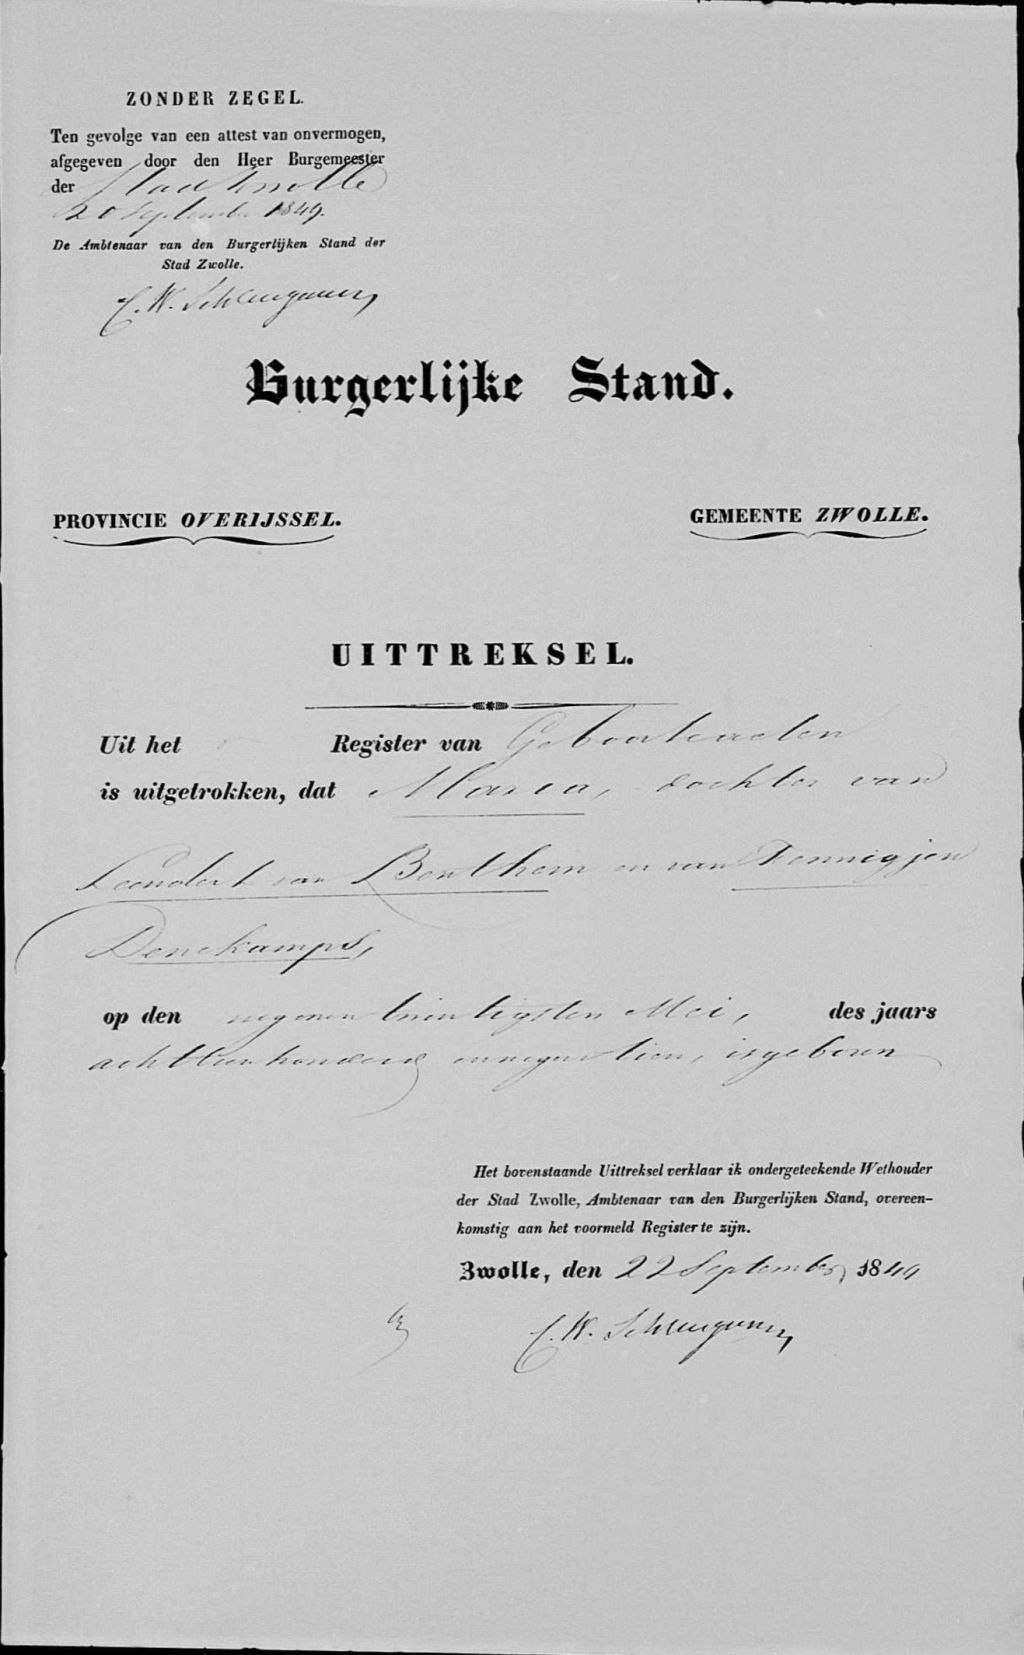 ZONDER ZEGEL.
Ten gevolge van een attest van onvermogen,
afgegeven door den Heer Burgemeester
der Stad Zwolle
20 September 1849.
De Ambtenaar van den Burgerlijken Stand der
Stad Zwolle.
Burgerlijke Stand.
PROVINCIE OVERIJSSEL.
GEMEENTE ZWOLLE.
UITTREKSEL.
Uit het Register van Geboorteacten
is uitgetrokken, dat Maria, dochter van
Leendert van Benthem en van Hennigjen
Denekamps,
op den negenen twintigsten Mei, des jaars
achttienhonderd en negentien, is geboren
Het bovenstaande Uittreksel verklaar ik ondergeteekende Wethouder
der Stad Zwolle, Ambtenaar van den Burgerlijken Stand, overeen-
komstig aan het voormeld Register te zijn.
Zwolle, den 22 September 1849